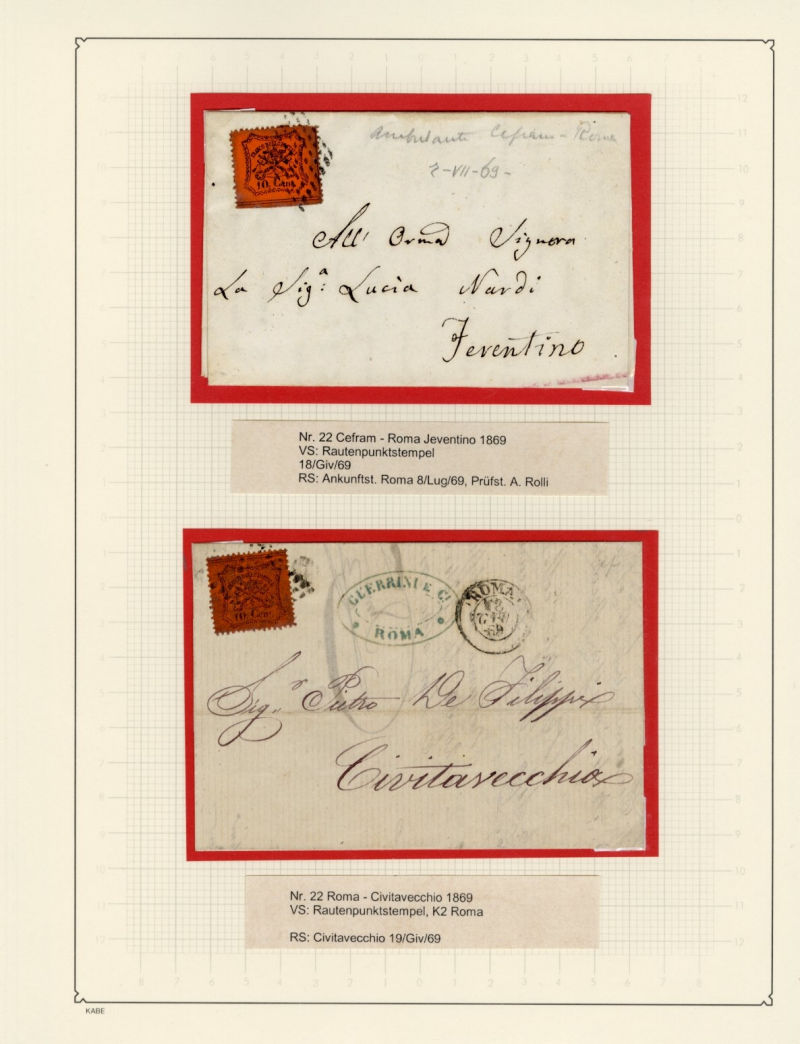 10. Cent
Ambulante Cefram - Roma
2-VII-69-
All' Orma Signora
La Sig:ª Lucia Nardi
Jeventino
Nr. 22 Cefram - Roma Jeventino 1869
VS: Rautenpunktstempel
18/Giv/69
RS: Ankunftst. Roma 8/Lug/69, Prüfst. A. Rolli
10. Cent
GUERRINI E C.
ROMA
ROMA
18
69
Sig.r Pietro De Filippi
Civitavecchia
Nr. 22 Roma - Civitavecchio 1869
VS: Rautenpunktstempel, K2 Roma
RS: Civitavecchio 19/Giv/69
KABE